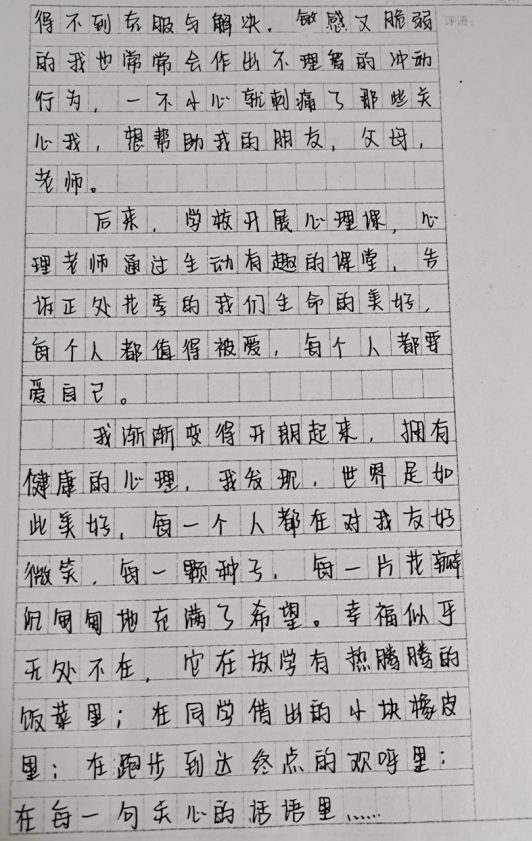 得不到克服与解决。敏感又脆弱
评语:
的我也常常会作出不理智的冲动
行为，一不小心就刺痛了那些关
心我，想帮助我的朋友，父母，
老师。
后来，学校开展心理课，心
理老师通过生动有趣的课堂，告
诉正处花季的我们生命的美好，
每个人都值得被爱，每个人都要
爱自己。
我渐渐变得开朗起来，拥有
健康的心理，我发现，世界是如
此美好，每一个人都在对我友好
微笑，每一颗种子，每一片花瓣
沉甸甸地充满了希望。幸福似乎
无处不在，它在放学有热腾腾的
饭菜里；在同学借出的小块橡皮
里；在跑步到达终点的欢呼里；
在每一句关心的话语里……